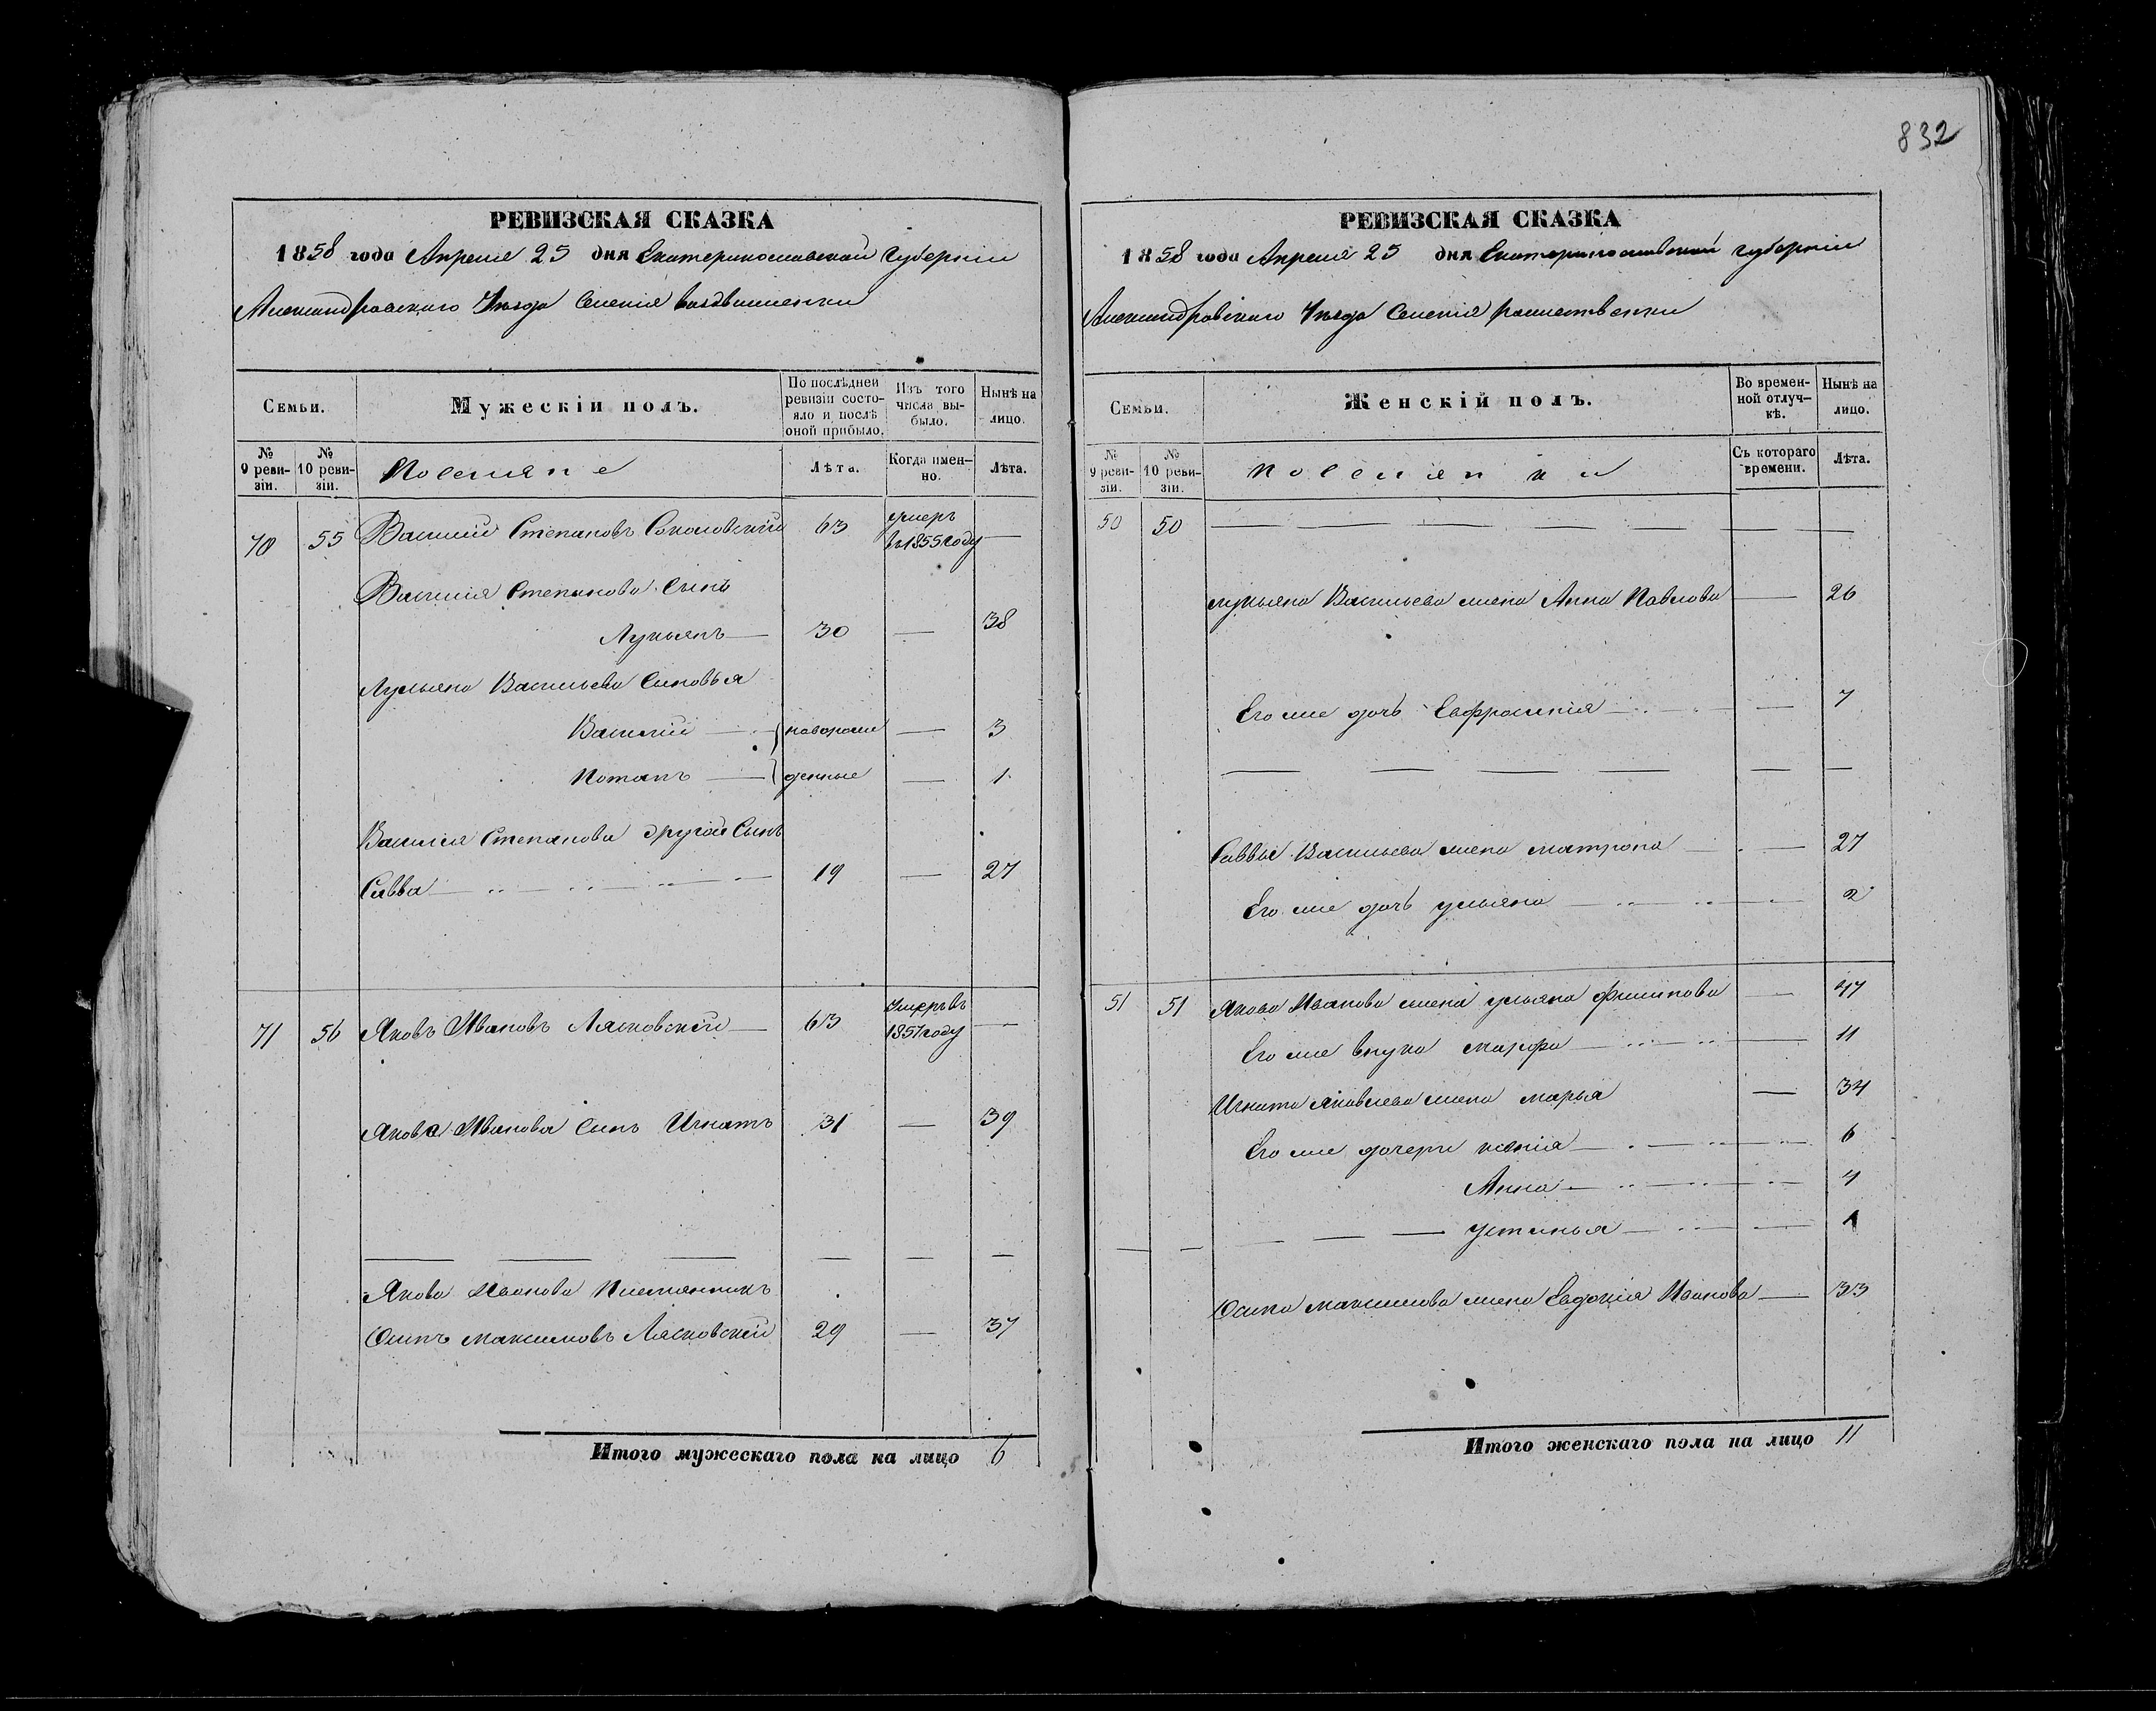 832
РЕВИЗСКАЯ СКАЗКА
1858 года Апреля 25 дня Екатеринославской Губерніи
Александровскаго Уезда Селенія Воздвиженки
Семьи.
Мужескій полъ.
По послѣдней ревизіи состояло и послѣ оной прибыло.
Изъ того числа выбыло.
Нынѣ на лицо.
№ 9 ревизіи.
№ 10 ревизіи.
Поселяне
Лѣта.
Когда именно.
Лѣта.
70 55 Василий Степановъ Соколовскій 63 умеръ —
въ 1855 году
Василія Степанова Сынъ
Лукьянъ — 30 — 38
Лукьяна Васильева Сыновья
Василій — новорож — 3
Потапъ — денные — 1
Василія Степанова другой Сынъ
Савва — 19 — 27
71 56 Яковъ Ивановъ Лясковскій — 63 Умеръ въ —
1857 году
Якова Иванова Сынъ Игнатъ 31 — 39
— — — — — —
Якова Иванова Племянникъ
Осипъ Максимовъ Лясковскій 29 — 37
Итого мужескаго пола на лицо 6
РЕВИЗСКАЯ СКАЗКА
1858 года Апреля 25 дня Екатеринославской Губерніи
Александровскаго Уезда Селенія
Семьи.
Женскій полъ.
Во временной отлучкѣ.
Нынѣ на лицо.
№ 9 ревизіи.
№ 10 ревизіи.
Поселянки
Съ котораго времени.
Лѣта.
50 50 — — — — — —
Лукьяна Васильева жена Анна Павлова — 26
Его же дочь Евфросинія — — 7
— — — — — —
Саввы Васильева жена Матрона — — 27
Его же дочь Ульяна — — 2
51 51 Якова Иванова жена Ульяна Филипова — 47
Его же внука Марфа — — 11
Игната Яковлева жена Марья — 34
Его же дочери Ксенія — — 6
Анна — — 4
— — — — — Устинья — — 1
Осипа Максимова жена Евдокія Иванова — 33
Итого женскаго пола на лицо 11